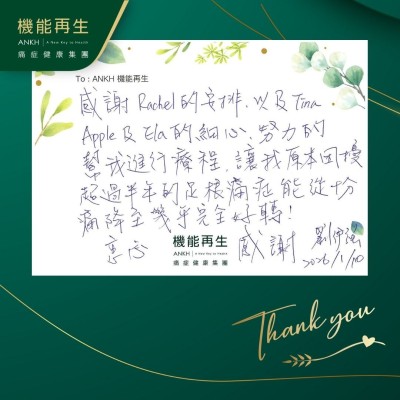 機能再生
ANKH | A New Key to Health
痛症健康集團
To : ANKH 機能再生
感謝 Rachel 的安排，以及 Tina
Apple 及 Ela 的細心、努力的
幫我進行療程，讓我原本困擾
超過半年的足根痛症能從十分
痛降至幾乎完全好轉！
感謝
2026/1/10
機能再生
ANKH | A New Key to Health
痛症健康集團
Thank you